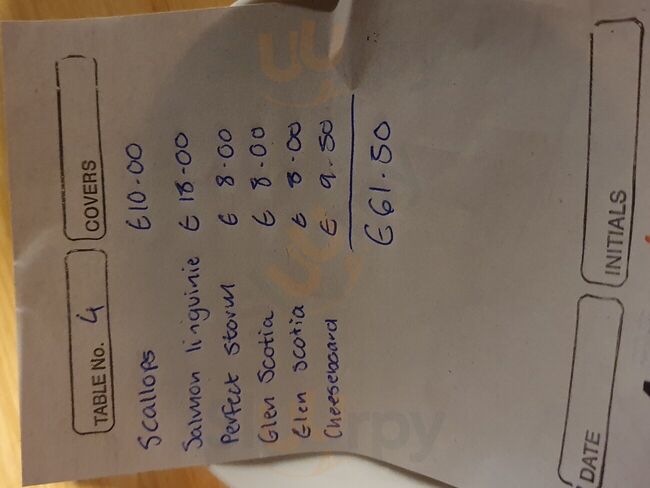 TABLE No. 4 COVERS
Scallops £10.00
Salmon linguinie £18.00
Perfect Storm £8.00
Glen Scotia £8.00
Glen Scotia £8.00
Cheeseboard £9.50
£61.50
DATE INITIALS